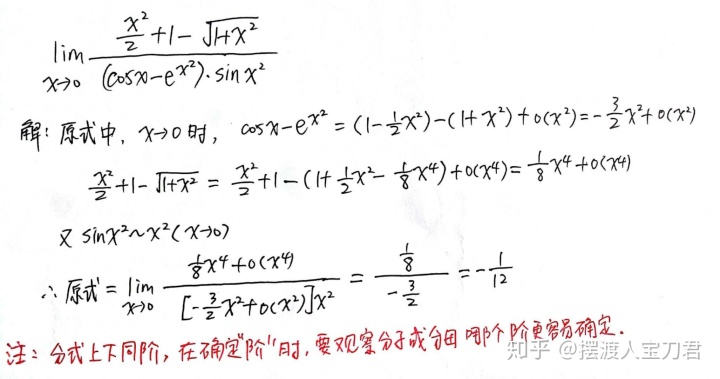 lim x→0 (x²/2 + 1 - √(1+x²)) / ((cosx - e^(x²))·sinx²)
解: 原式中, x→0时, cosx - e^(x²) = (1 - ½x²) - (1 + x²) + o(x²) = -3/2 x² + o(x²)
x²/2 + 1 - √(1+x²) = x²/2 + 1 - (1 + ½x² - ⅛x⁴) + o(x⁴) = ⅛x⁴ + o(x⁴)
又 sinx² ~ x² (x→0)
∴ 原式 = lim x→0 (⅛x⁴ + o(x⁴)) / ([-3/2 x² + o(x²)]x²) = (⅛) / (-3/2) = -1/12
注: 分式上下同阶, 在确定"阶"时, 要观察分子或分母哪个阶更容易确定.
知乎 @摆渡人宝刀君